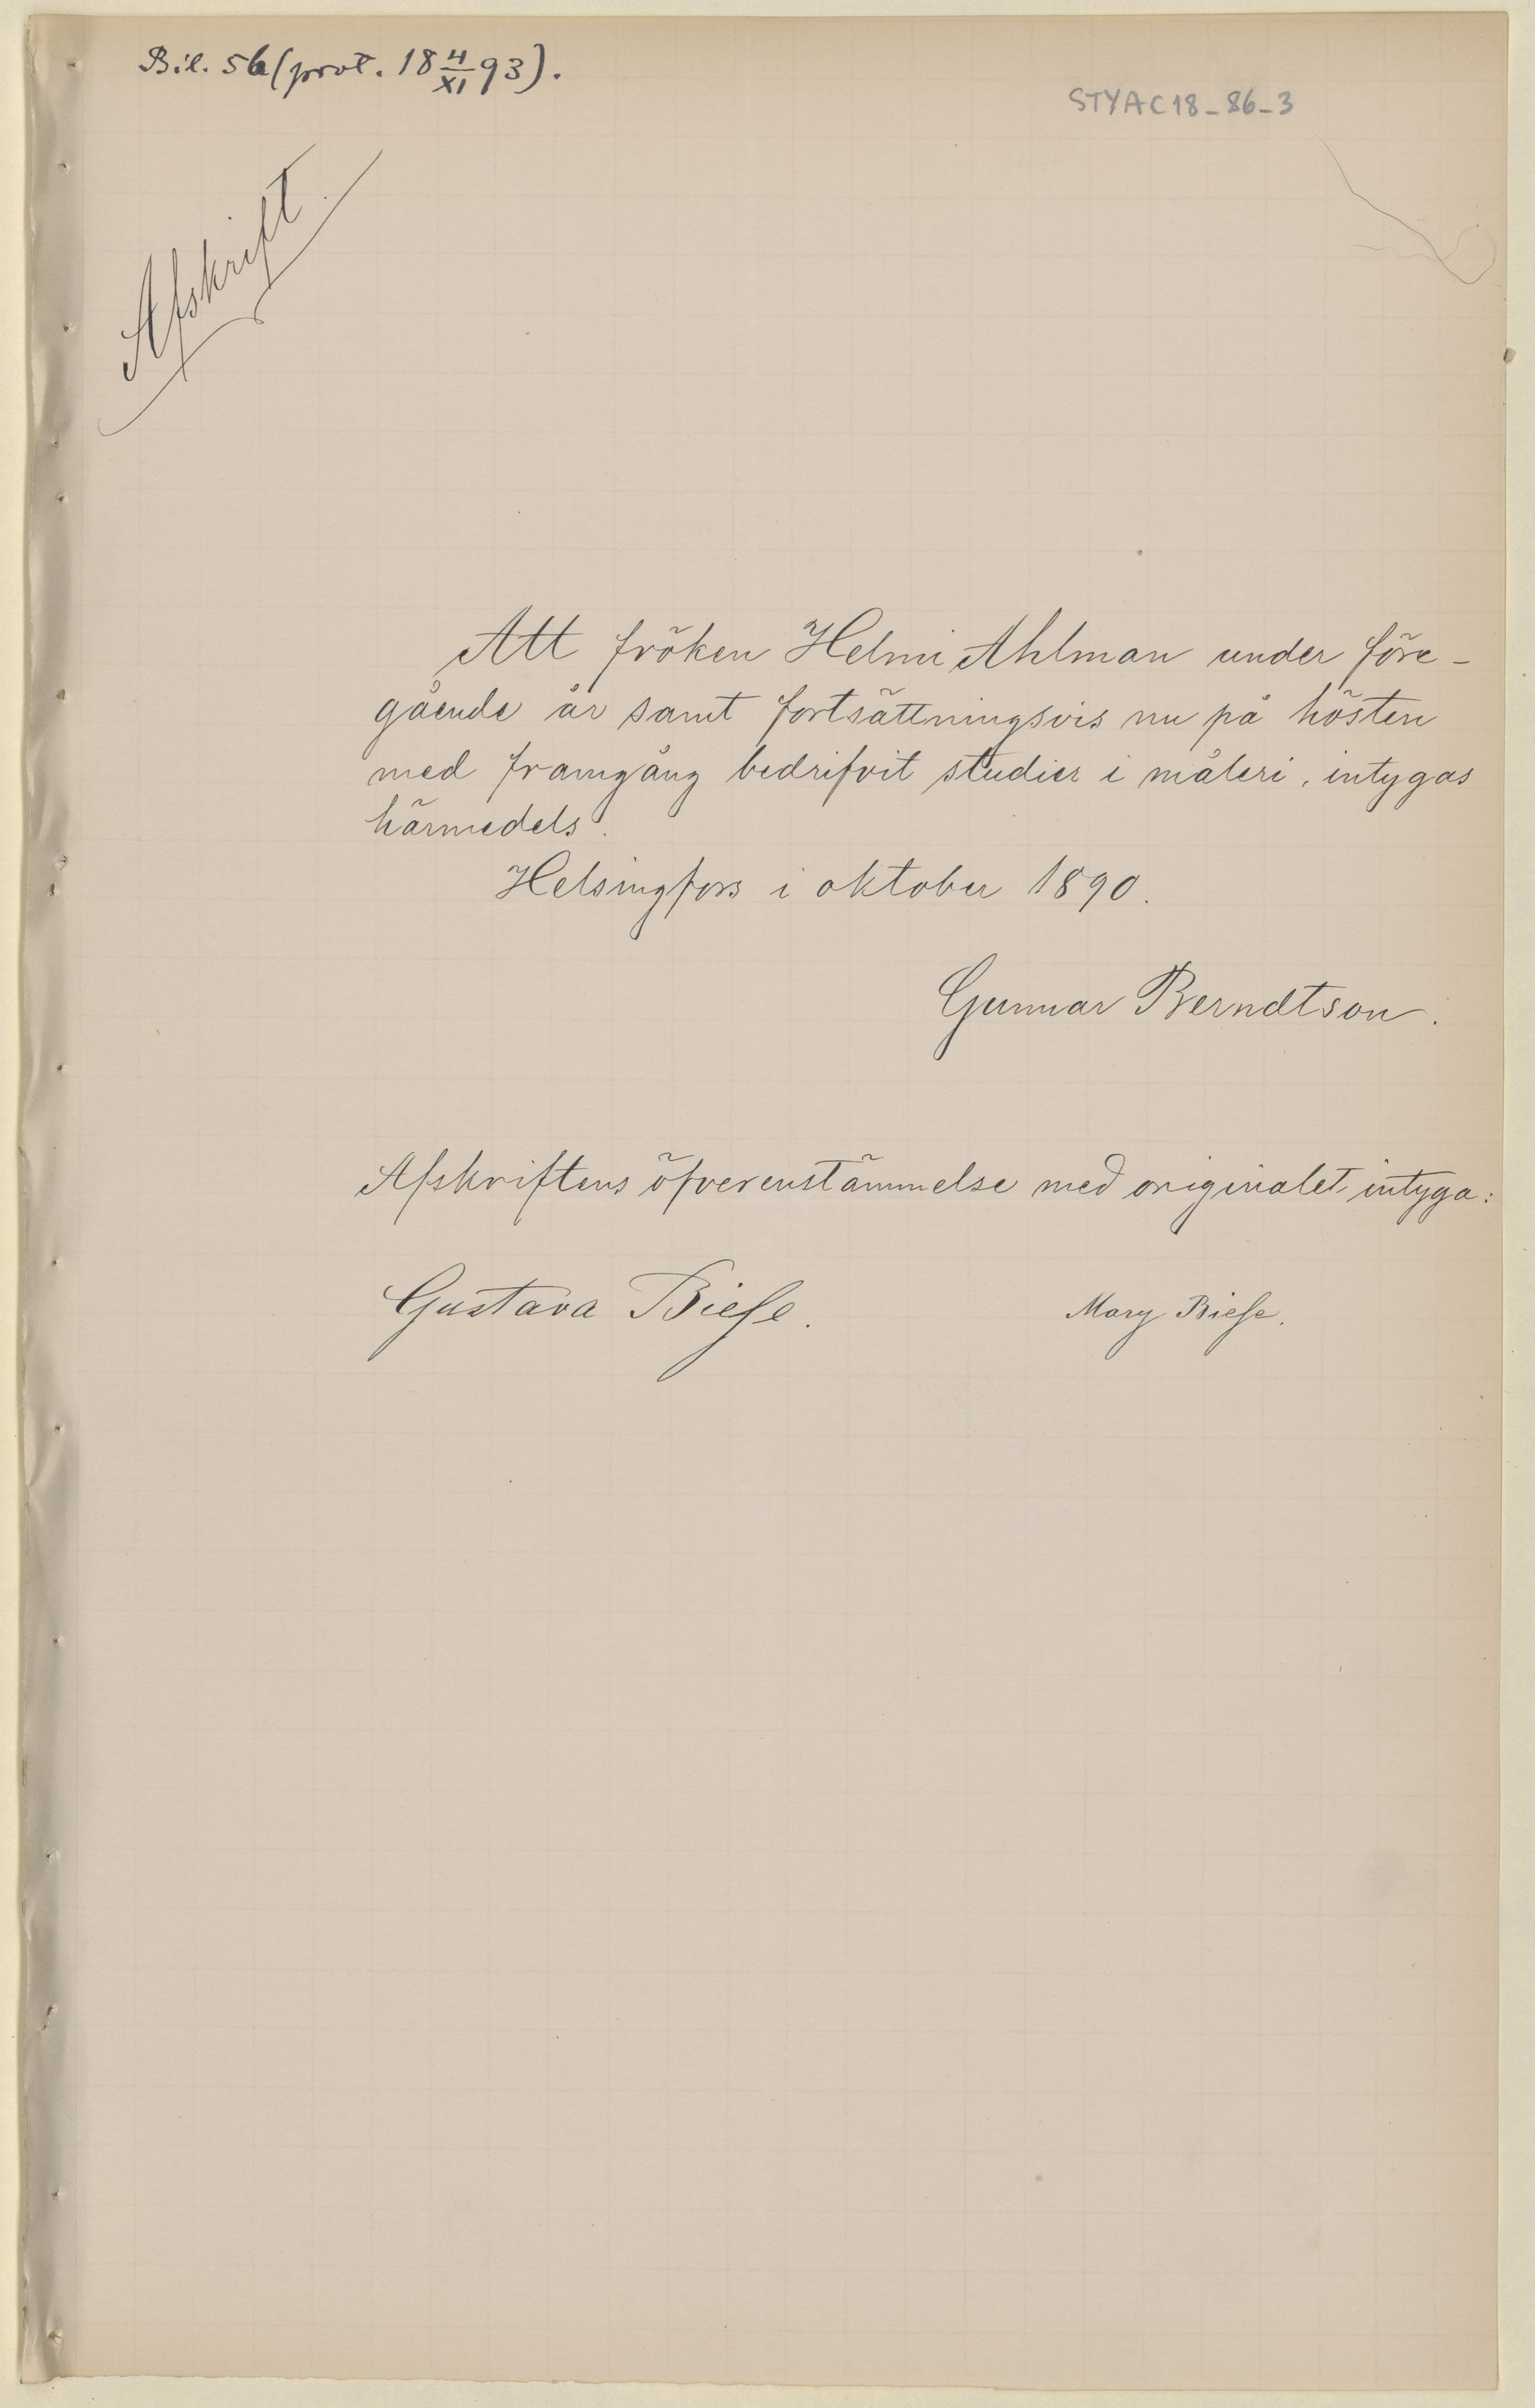 Bil. 5b (prot. 18 4/XI 93).
STYA C18_86_3
Afskrift.
Att fröken Helmi Ahlman under före-
gående år samt fortsättningsvis nu på hösten
med framgång bedrifvit studier i måleri, intygas
härmedels.
Helsingfors i oktober 1890.
Gunnar Berndtson.
Afskriftens öfverenstämmelse med originalet intyga:
Gustava Biese.
Mary Biese.